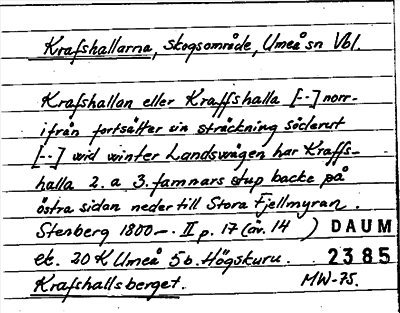 Krafshallarna, skogsområde, Umeå sn Vbl.
Krafshallan eller Kraffshalla [--] norr-
ifrån fortsätter sin sträckning söderut
[--] wid winter Landswägen har Kraffs-
halla 2. a 3. famnars stup backe på
östra sidan neder till Stora Fjellmyran.
Stenberg 1800-. II p. 17 (av. 14 ) DAUM
ek. 20 K Umeå 5b. Högskuru. 2385
Krafshallsberget. MW-75.